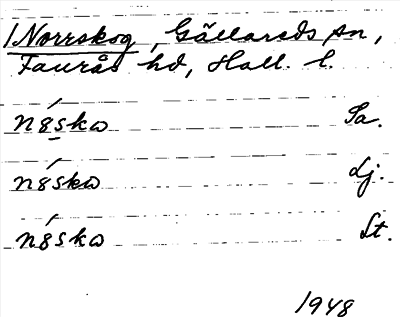 /Norrskog, Gällareds sn,
Faurås hd, Hall. l.
nŏ́ska Sa.
nŏ́ska Lj.
nŏ́ska St.
1948